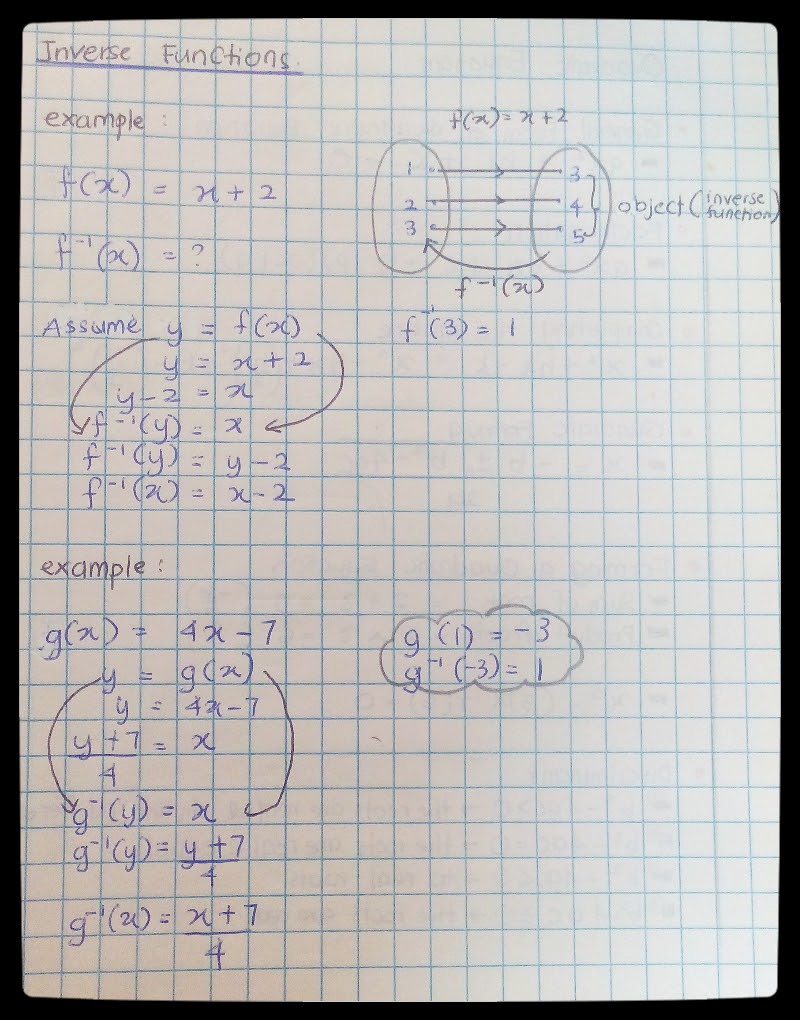 Inverse Functions.
example:
f(x) = x + 2
f⁻¹(x) = ?
f(x) = x + 2
1 3
2 4
3 5
object (inverse function)
f⁻¹(x)
f⁻¹(3) = 1
Assume y = f(x)
y = x + 2
y - 2 = x
f⁻¹(y) = x
f⁻¹(y) = y - 2
f⁻¹(x) = x - 2
example:
g(x) = 4x - 7
y = g(x)
y = 4x - 7
y + 7 = x
4
g⁻¹(y) = x
g⁻¹(y) = y + 7
4
g⁻¹(x) = x + 7
4
g (1) = -3
g⁻¹ (-3) = 1